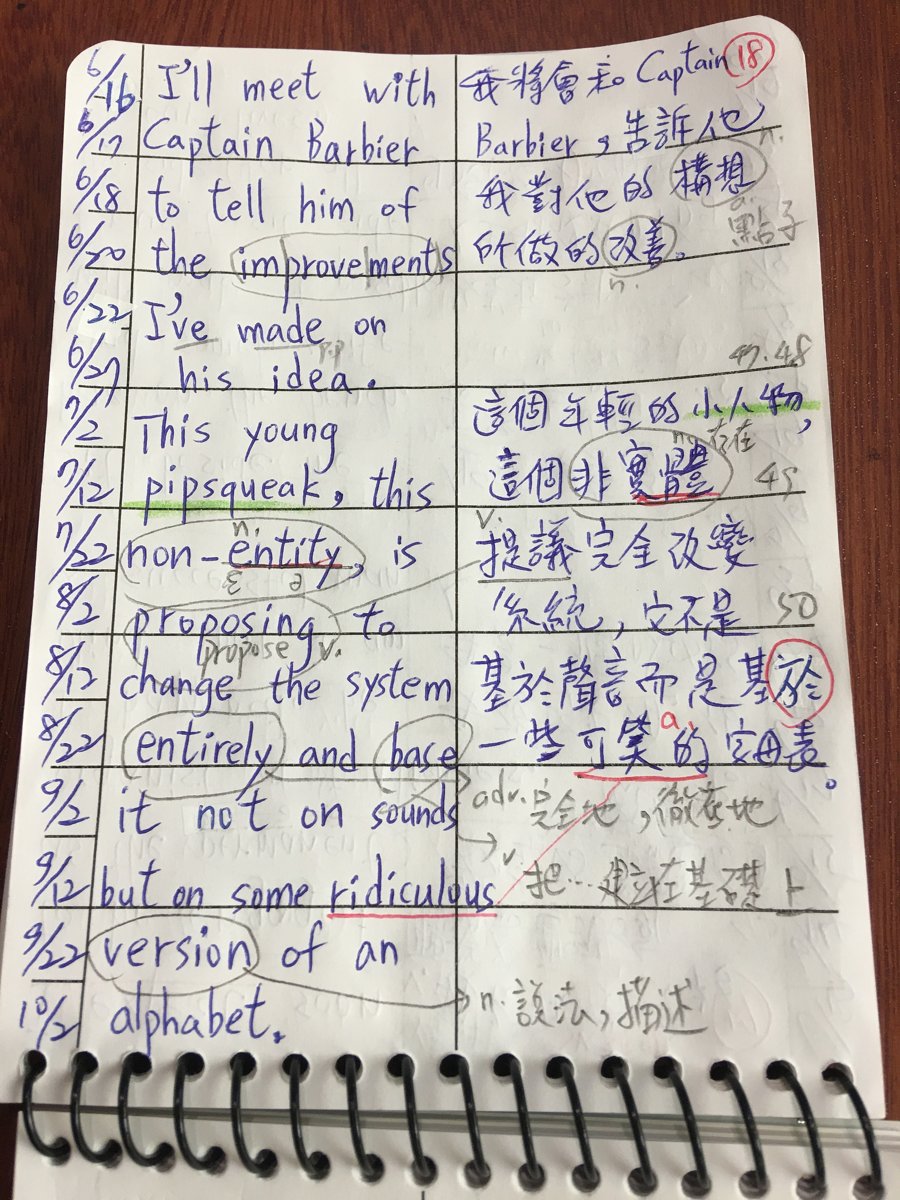 6/16 I'll meet with 我將會和 Captain 18
6/17 Captain Barbier Barbier,告訴他
n.
6/18 to tell him of 我對他的構想
a.
點子
6/20 the improvements 所做的改善。
n.
6/22 I've made on
p.p
6/27 his idea.
47.48
7/2 This young 這個年輕的小人物,
n. 存在
7/12 pipsqueak, this 這個非實體 49
n. v.
7/22 non-entity, is 提議完全改變
8/2 proposing to 系統,它不是 50
propose v.
8/12 change the system 基於聲音而是基於
a.
8/22 entirely and base 一些可笑的字母表。
9/2 it not on sounds adv. 完全地,徹底地
v.
9/12 but on some ridiculous 把…建立在基礎上
9/22 version of an
n. 說法,描述
10/2 alphabet.